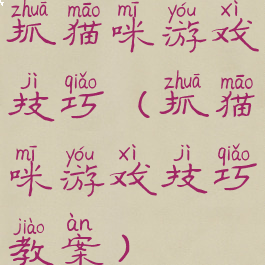 zhuā māo mī yóu xì
抓猫咪游戏
jì qiǎo zhuā māo
技巧(抓猫
mī yóu xì jì qiǎo
咪游戏技巧
jiào àn
教案)